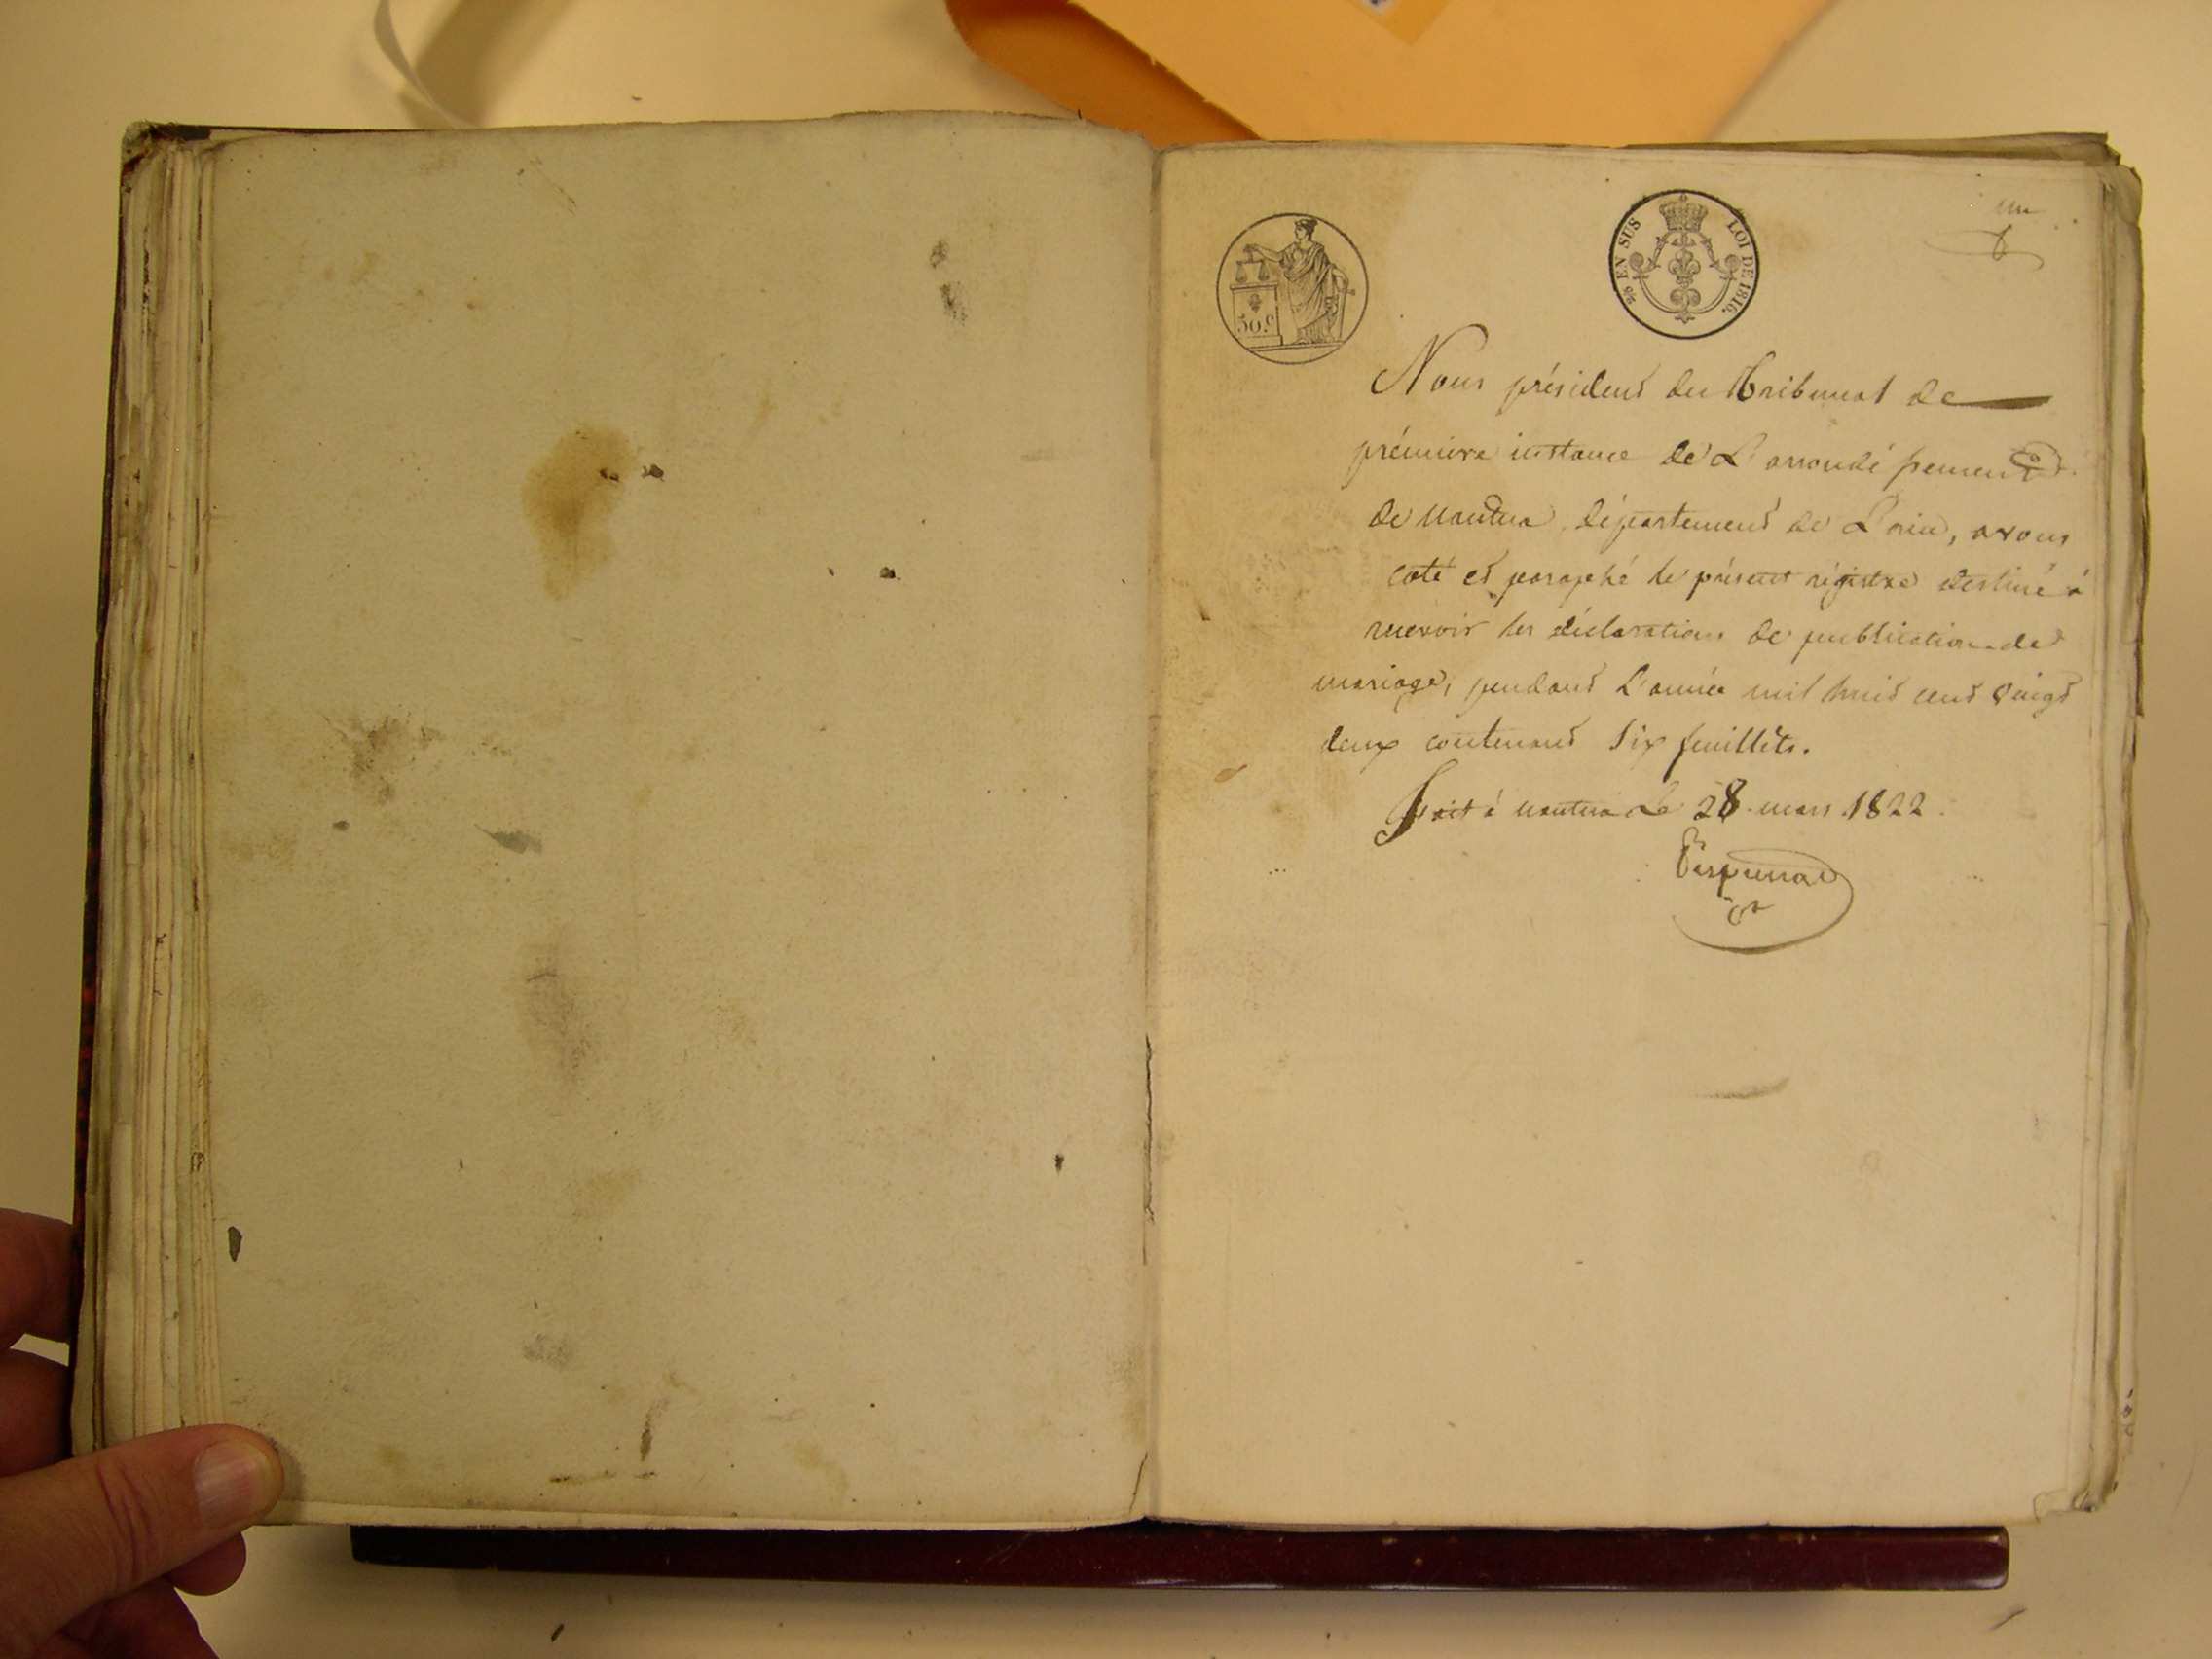 un
2/5 EN SUS LOI DE 1816.
50.C
Nous président du tribunal de
prémiere instance de L'arrondissement
de nantua, département de L'ain, avons
coté et paraphé le présent régistre destiné à
recevoir les déclarations de publication de
mariage, pendant L'année mil huit cent vingt
deux contenant six feuillets.
Fait à nantua le 28 mars 1822.